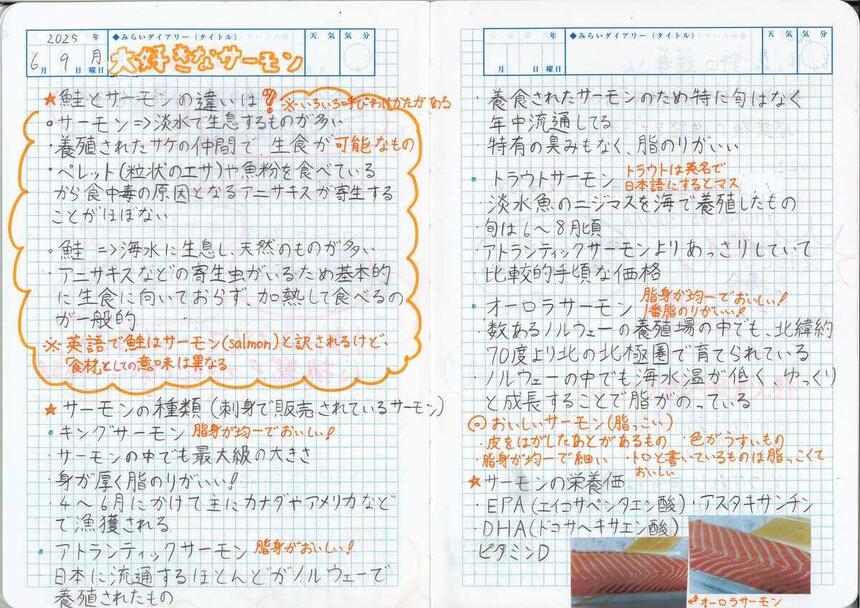 2025 年
6月 9日 月曜日
◆みらいダイアリー（タイトル）
天気 気分
大好きなサーモン
★鮭とサーモンの違いは？ ※いろいろ呼びわけかたがある
○サーモン⇒淡水で生息するものが多い
・養殖されたサケの仲間で、生食が可能なもの
・ペレット(粒状のエサ)や魚粉を食べている
から食中毒の原因となるアニサキスが寄生する
ことがほぼない
○鮭 ⇒海水に生息し、天然のものが多い
・アニサキスなどの寄生虫がいるため基本的
に生食に向いておらず、加熱して食べるの
が一般的
※英語で鮭はサーモン(salmon)と訳されるけど、
"食材"としての意味は異なる
★サーモンの種類(刺身で販売されているサーモン)
・キングサーモン 脂身が均一でおいしい!
・サーモンの中でも最大級の大きさ
・身が厚く脂のりがいい!
・4～6月にかけて主にカナダやアメリカなど
で漁獲される
・アトランティックサーモン 脂身がおいしい!
日本に流通するほとんどがノルウェーで
養殖されたもの
年
月 日 曜日
◆みらいダイアリー（タイトル）
天気 気分
・養食されたサーモンのため特に旬はなく
年中流通してる
・特有の臭みもなく、脂のりがいい
・トラウトサーモン トラウトは英名で
日本語にするとマス
淡水魚のニジマスを海で養殖したもの
・旬は6～8月頃
・アトランティックサーモンよりあっさりしていて
比較的手頃な価格
・オーロラサーモン 脂身が均一でおいしい!
1番脂のりがいい!
・数あるノルウェーの養殖場の中でも、北緯約
70度より北の北極圏で育てられている
・ノルウェーの中でも海水温が低く、ゆっくり
と成長することで脂がのっている
◎おいしいサーモン(脂っこい)
・皮をはがしたあとがあるもの ・色がうすいもの
・脂身が均一で細い ・トロと書いているものは脂っこくて
おいしい
★サーモンの栄養価
・EPA(エイコサペンタエン酸)・アスタキサンチン
・DHA(ドコサヘキサエン酸)
・ビタミンD
オーロラサーモン